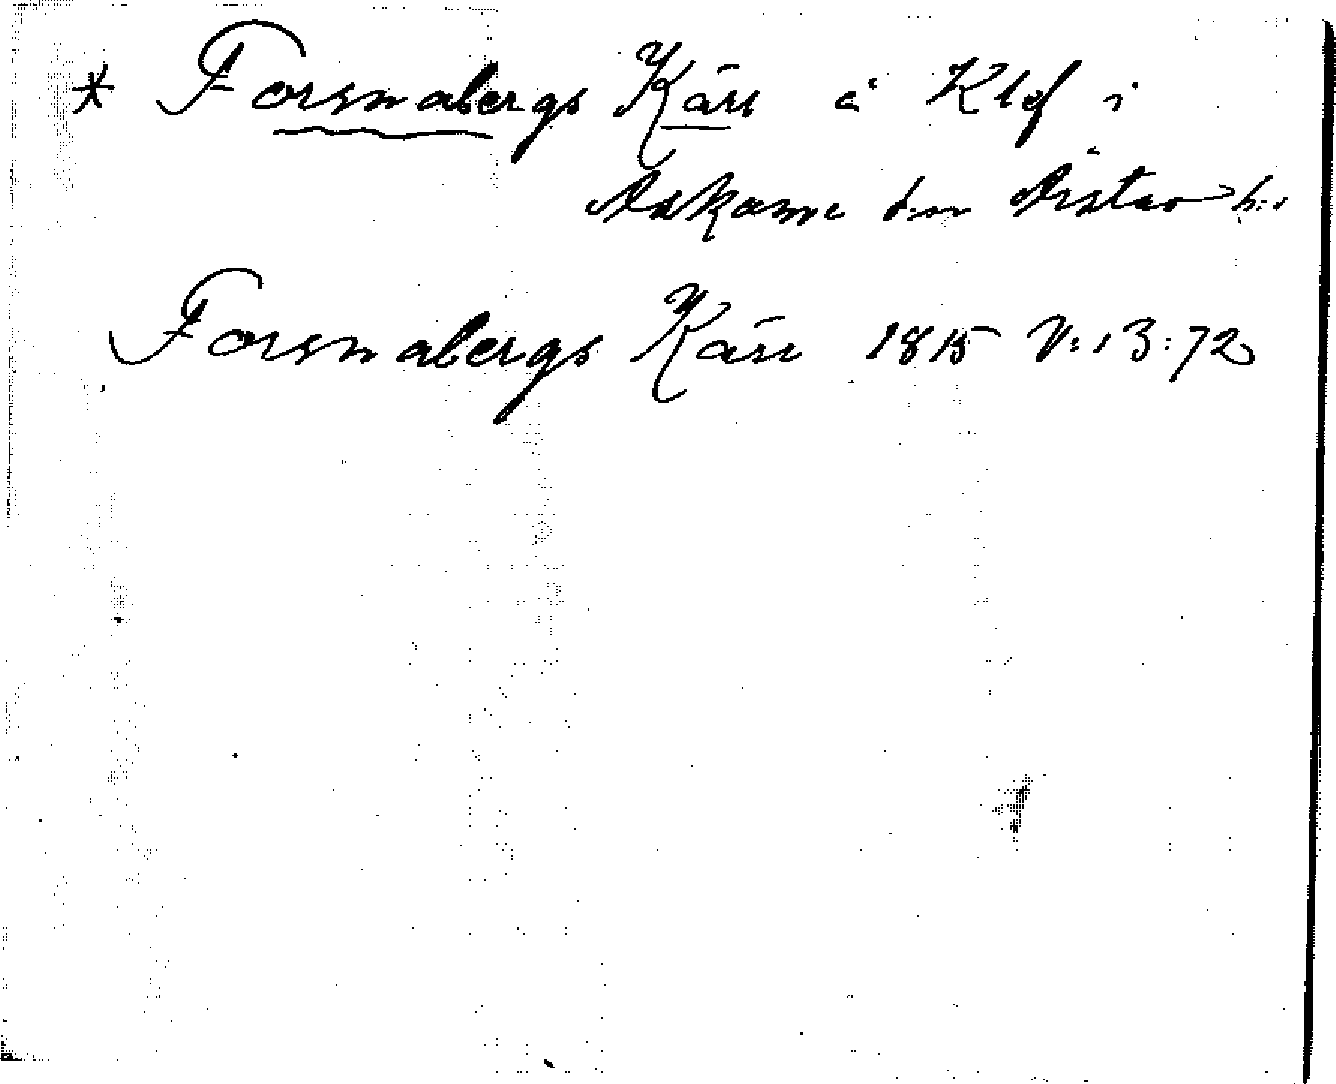 * Forsnabergs Kärr å Klef i
Askome sn Årstad hd
Forsnabergs Kärr 1815 V:13:72